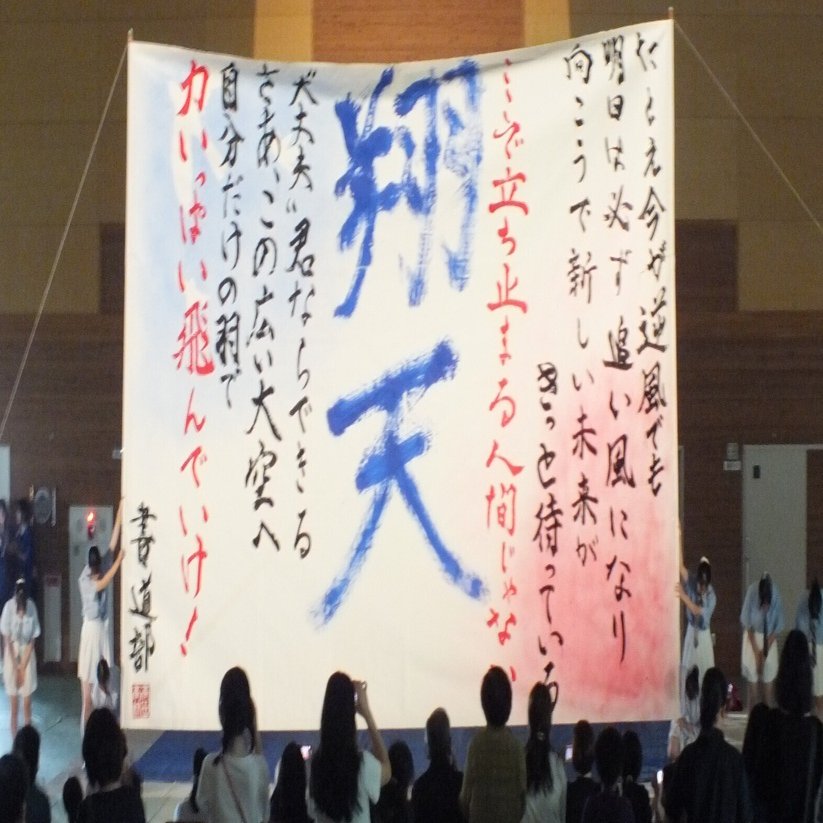 たとえ今が逆風でも
明日は必ず追い風になり
向こうで新しい未来が
きっと待っている
ここで立ち止まる人間じゃない
翔天
大丈夫 君ならできる
さあ、この広い大空へ
自分だけの羽で
力いっぱい飛んでいけ!
書道部